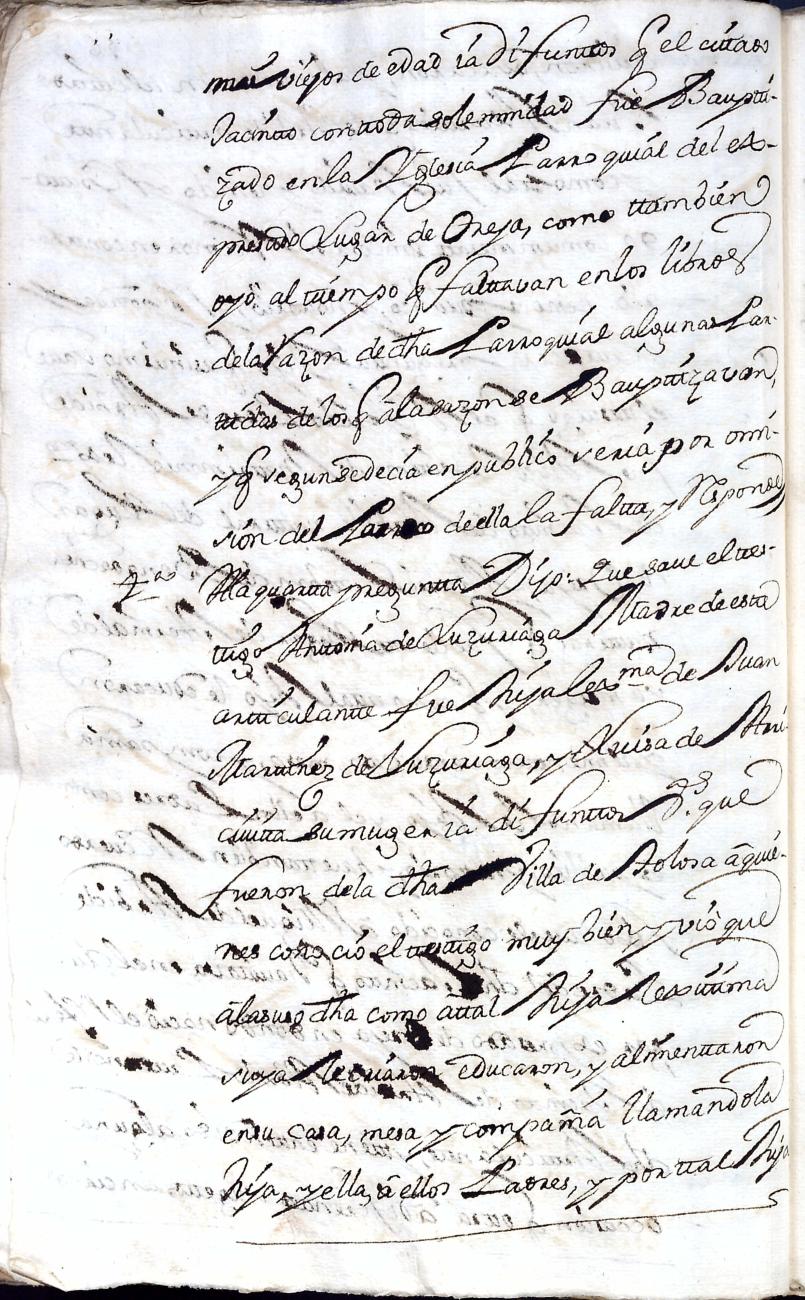 muy viejos de edad ia difuntos q el cittado
Jacintto con ttoda solemnidad fue Bauptti-
zado en la Yglesia Parroquial del ex-
presado Lugar de Oreja, como ttambien
oyò al tiempo q falttavan en los libros
de la Razon de dha Parroquial algunas Par-
ttidas de los q a la sazon se Bauptizavan,
y q segun se decia en publico seria por omi-
sion del Parroco de ella la faltta, y Responde
4ª Â la quartta preguntta Dijo: Que save el tes-
ttigo Anttonia de Luzuriaga Madre de esta
artticulantte fue hija lexma de Juan
Marttinez de Luzuriaga, y Luisa de Arri-
civitta su muger ia difunttos
que
fueron de la dha Villa de Tolosa â quie-
nes conoció el testtigo muy bien y viò que
â la suso dha como a ttal hija lexittima
suya le criaron educaron, y alimenttaron
en su casa, mesa y compañia llamandola
hija, y ella, â ellos Padres, y por ttal hija